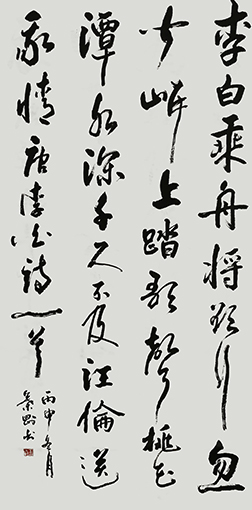 李白乘舟将欲行忽
闻岸上踏歌声桃花
潭水深千尺不及汪倫送
我情唐李白诗一首
丙申冬月
书